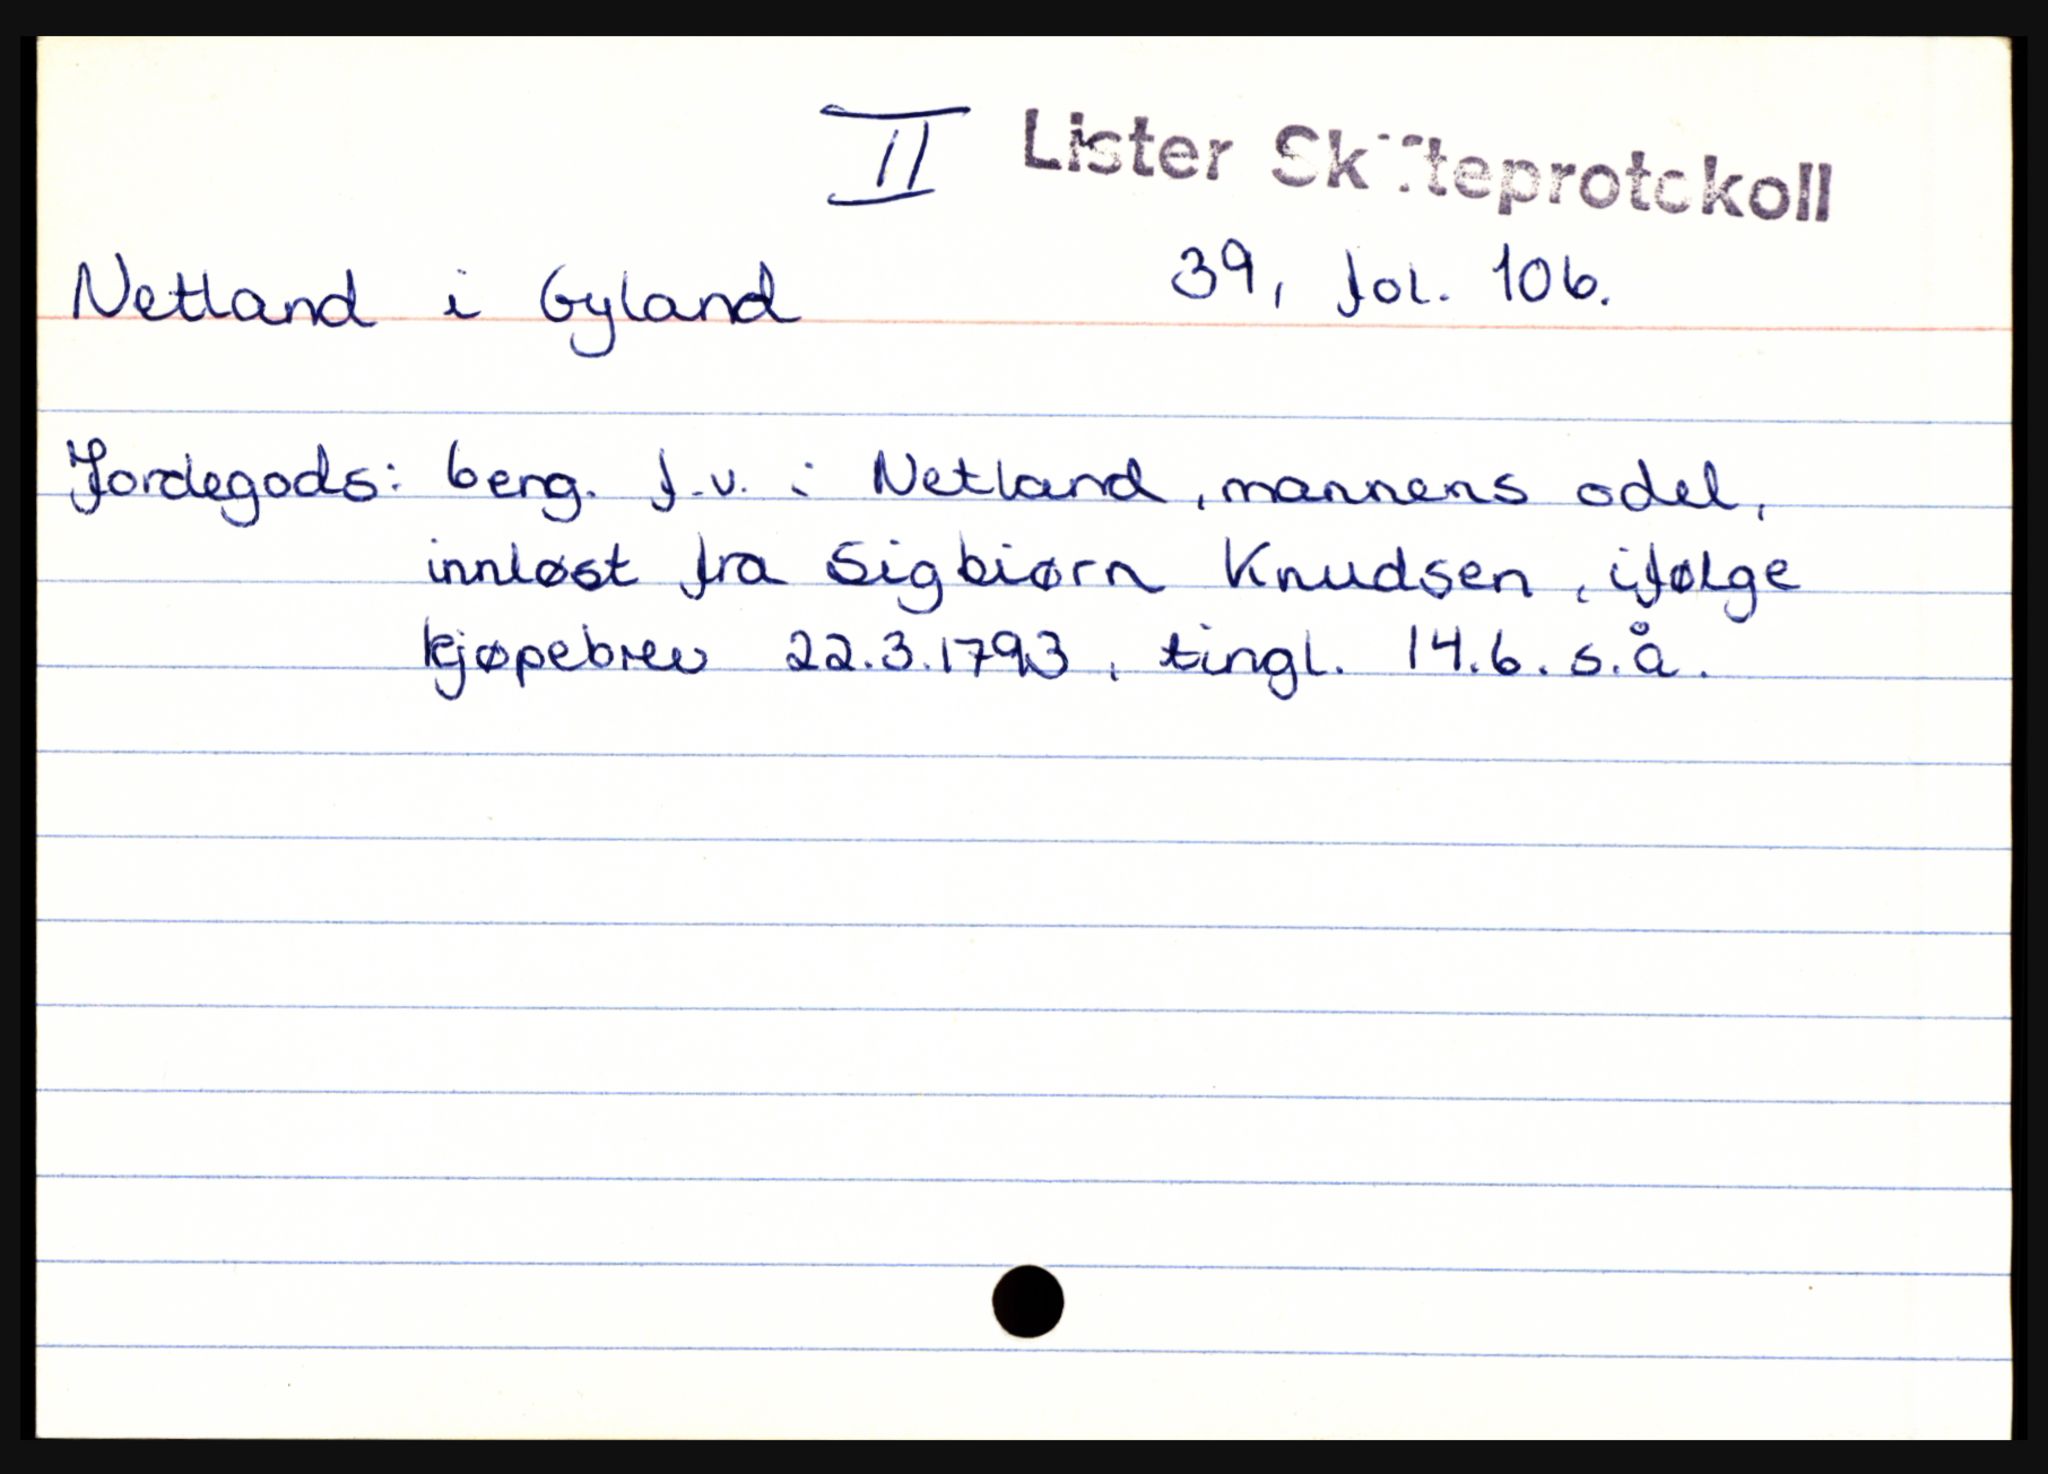 II Lister Skifteprotokoll
Netland i Gyland 39, fol. 106.
Jordegods: 6 eng. f.v. i Netland, mannens odel,
innløst fra Sigbiørn Knudsen, ifølge
kjøpebrev 22.3.1793, tingl. 14.6. s.å.